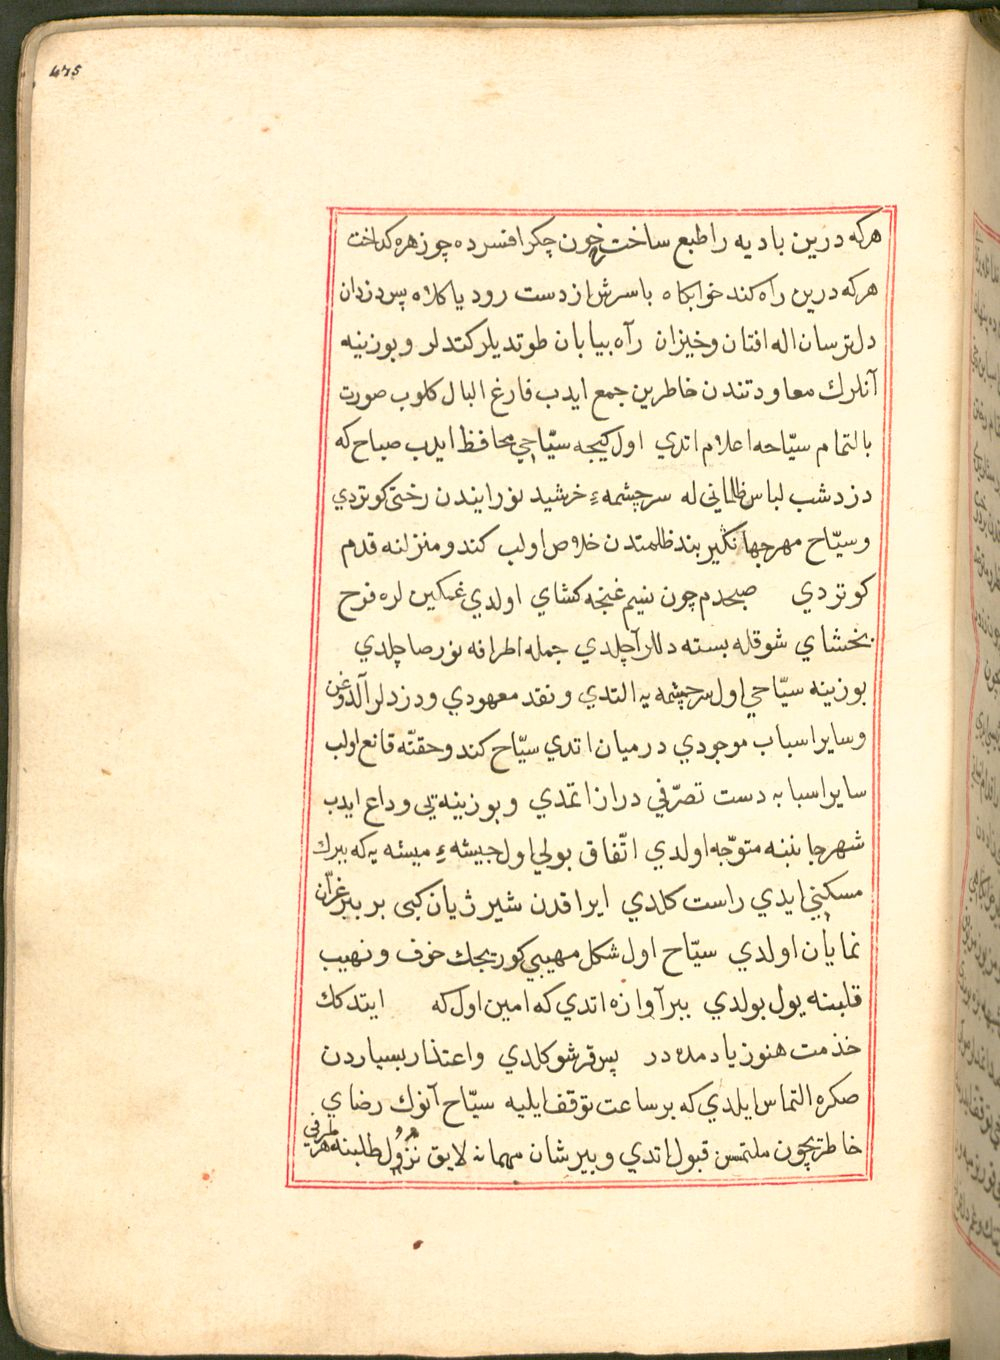 475
هركه درين باديه را طبع ساخت خون جكر افسرده چو زهره كداخت
هركه درين راه كند خوابكاه يا سرش از دست رود يا كلاه پس دزدان
دل ترسان اله افتان وخيزان راه بيابان طوتديلر كتدلر وبوزينه
آنلرك معاودتندن خاطرين جمع ايدب فارغ البال كلوب صورت
بالتمام سيّاحه اعلام اتدي اول كيجه سيّاحي محافظ ايدب صباح كه
دزد شب لباس ظلماني له سرچشمهء خرشيد نورايندن رختى كوتردي
وسيّاح مهر جهانكير بند ظلمتدن خلاص اولب كندو منزلنه قدم
كوتردي صبحدم چون نسيم غنچه كشاي اولدي غمكين لره فرح
بخشاي شوقله بسته دللر آچلدي جمله اطرافه نور صاچلدي
بوزينه سيّاحي اول سرچشمه يه التدي ونقد معهودي ودزدلر آلدوغن
وساير اسباب موجودي درميان اتدي سيّاح كندو حقنّه قانع اولب
ساير اسبابه دست تصرّفي دراز اتمدي وبوزينه يى وداع ايدب
شهر جانبنه متوجّه اولدي اتّفاق يولي اول جيشهء ميشه يه كه ببرك
مسكني ايدي راست كلدي ايراقدن شير ژيان كبى بر ببر غرّان
نمايان اولدي سيّاح اول شكل مهيبي كوريجك خوف ونهيب
قلبنه يول بولدي ببر آوازه اتدي كه امين اول كه ايتدكك
خدمت هنوز يادمده در پس قرشو كلدي واعتذار بسياردن
صكره التماس ايلدي كه بر ساعت توقف ايليه سيّاح آنوك رضاي
خاطريچون ملتمس قبول اتدي وببر شان مهمانه لايق نُزُول طلبنه هر طرفي